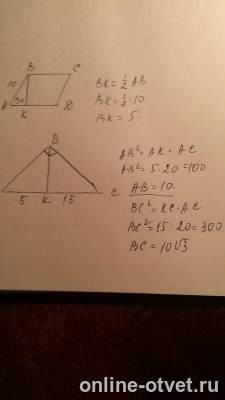 B C
10
30
A K D
BK = 1/2 AB
BK = 1/2 · 10
BK = 5.
B
5 K 15 C
AB² = AK · AC
AB² = 5 · 20 = 100
AB = 10.
BC² = KC · AC
BC² = 15 · 20 = 300
BC = 10√3
online-otvet.ru